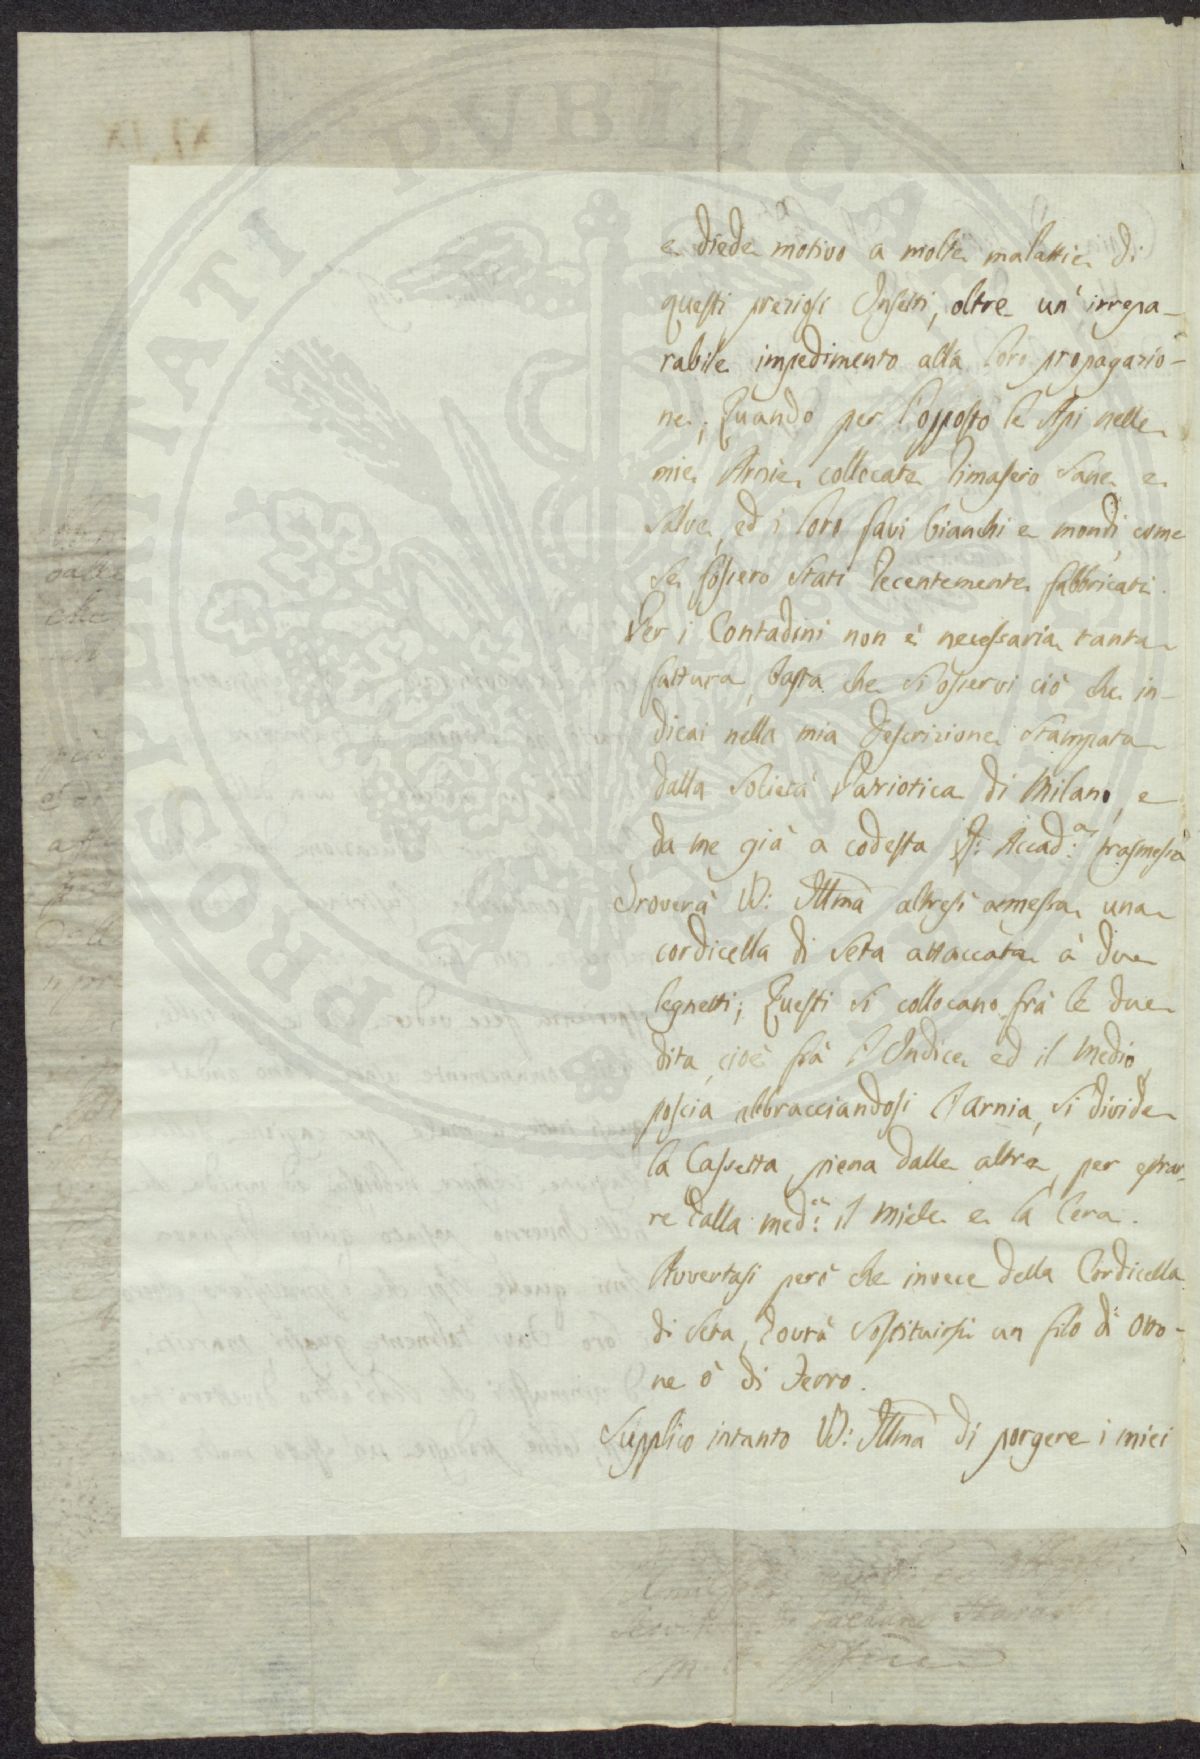 e diede motivo a molte malattie di
questi preziosi Insetti, oltre un' irrepa-
rabile impedimento alla loro propagazio-
ne; Quando per l'opposto le Api nelle
mie Arnie collocate rimasero sane e
salve, ed i loro favi bianchi e mondi, come
se fossero stati recentemente fabbricati.
Per i Contadini non è necessaria tanta
fattura, basta che si osservi ciò che in-
dicai nella mia descrizione stampata
dalla Società Patriotica di Milano, e
da me già a codesta Accad:a trasmessa
Troverà VV: Illma altresì annessa una
cordicella di seta attaccata à due
legnetti; Questi si collocano frà le due
dita, cioè frà l'Indice ed il Medio,
poscia abbracciandosi l'arnia, si divide
la Cassetta piena dalle altre, per estrar-
re dalla med:a il miele e la Cera.
Avvertasi però che invece della Cordicella
di seta, dovrà sostituirsi un filo di otto-
ne ò di Ferro.
Supplico intanto VV: Illma di porgere i miei
PROSPERITATI PVBLICAE